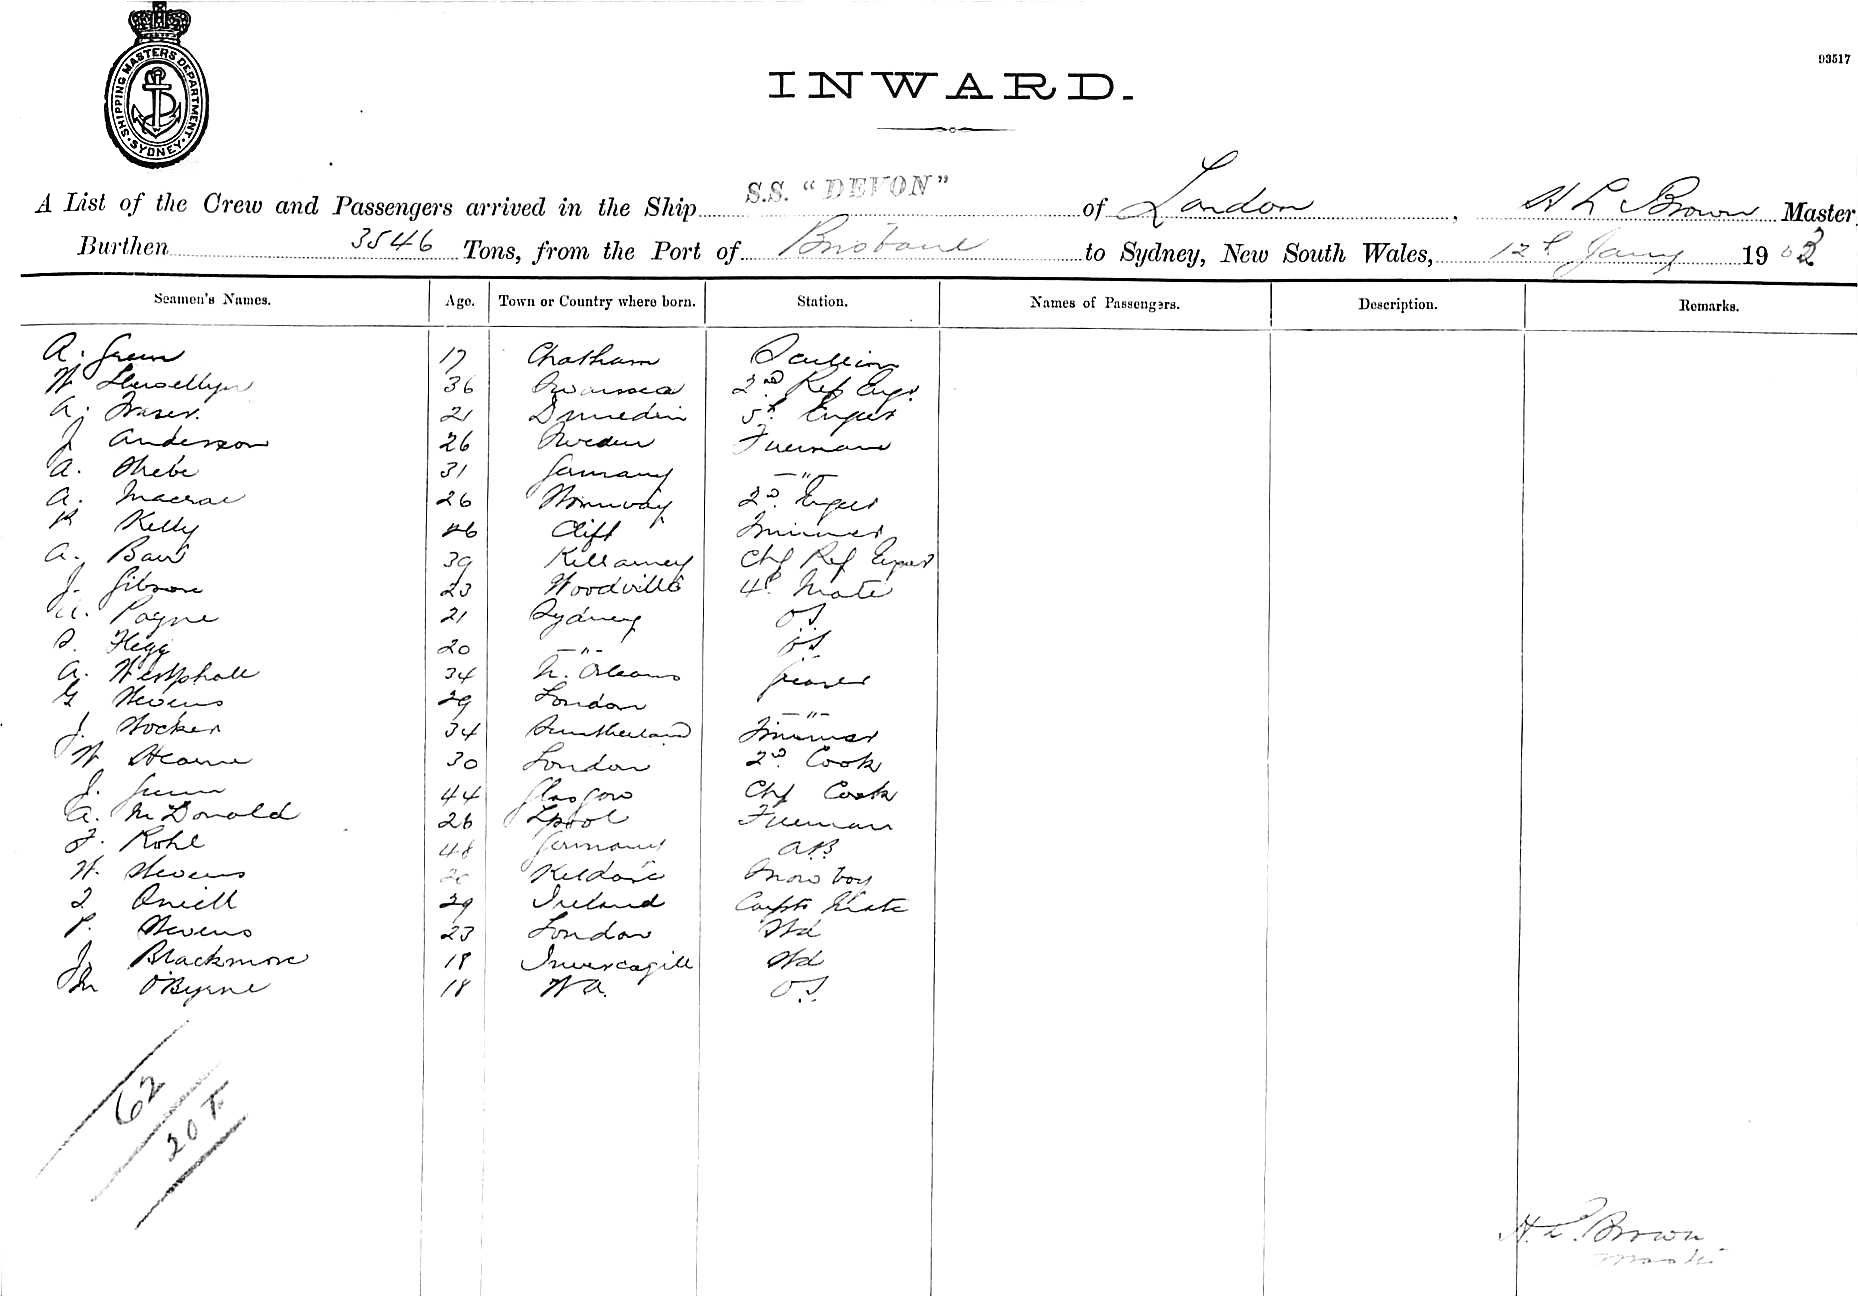 SHIPPING MASTERS DEPARTMENT
SYDNEY
93517
INWARD.
A List of the Crew and Passengers arrived in the Ship S.S. "DEVON" of London, H L Brown Master
Burthen 3546 Tons, from the Port of Brisbane to Sydney, New South Wales, 12th Jany 1903
Seamen's Names. Age. Town or Country where born. Station. Names of Passengers. Description. Remarks.
A. Green 17 Chatham Scullion
W Llewellyn 36 Swansea 2nd Ref Engr
A. Fraser. 21 Dunedin 5th Engeer
J Anderson 26 Sweden Fireman
A. 31 Germany —"—
A. Macrae 26 Norway 2nd Engeer
Kelly 26 Clift Trimmer
A. Barr 39 Killarney Chf Ref Engeer
J. Gibson 23 Woodville 4th Mate
Payne 21 Sydney OS
Flegg 20 —"— OS
A. Westphall 34 N. Orleans Greaser
G Stevens 29 London —"—
J. Stocker 34 Suntherland Trimmer
W Hearne 30 London 2nd Cook
J. Gunn 44 Glasgow Chf Cook
A. McDonald 26 Lpool Fireman
F. Kohl 48 Germany AB
W. Stevens Kildare Snow boy
Oneill 29 Ireland Carptr Mate
P. Stevens 23 London Std
J. Blackmore 18 Invercagill Std
M O'Byrne 18 WA. OS
62
20 F.
H. L. Brown
Master